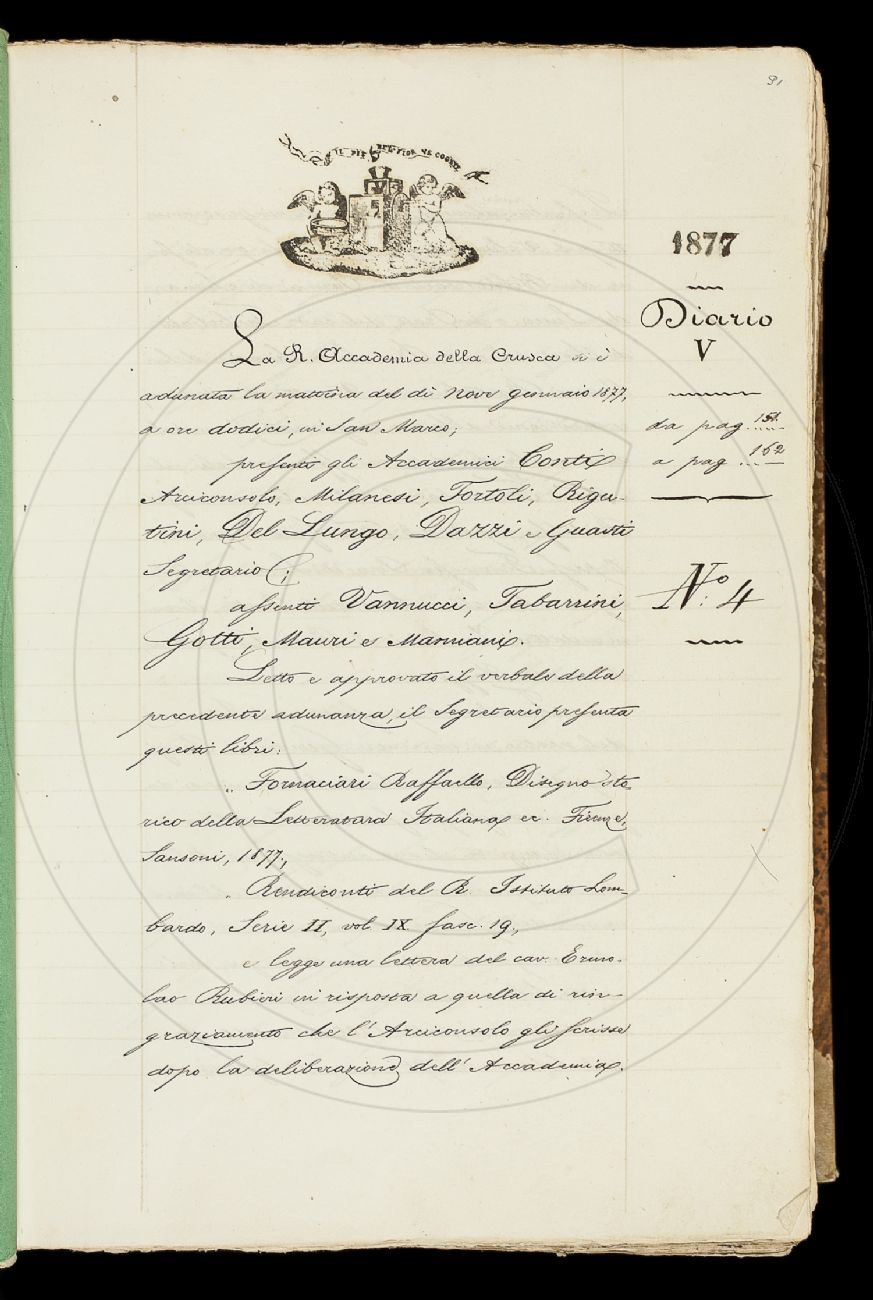 91
IL PIÙ BEL FIOR NE COGLIE
1877
Diario
V
da pag. 151
a pag. 162
N.º 4
La R. Accademia della Crusca si è
adunata la mattina del dì Nove gennaio 1877,
a ore dodici, in San Marco;
presenti gli Accademici Conti
Arciconsolo, Milanesi, Tortoli, Rigu-
tini, Del Lungo, Dazzi e Guasti
Segretario;
assenti Vannucci, Tabarrini,
Gotti, Mauri e Mamiani.
Letto e approvato il verbale della
precedente adunanza, il Segretario presenta
questi libri:
„ Fornaciari Raffaello, Disegno sto-
rico della Letteratura Italiana ec. Firenze,
Sansoni, 1877.,
„ Rendiconti del R. Istituto Lom-
bardo, Serie II, vol. IX fasc. 19.,
e legge una lettera del cav. Ermo-
lao Rubieri in risposta a quella di rin-
graziamento che l'Arciconsolo gli scrisse
dopo la deliberazione dell'Accademia.